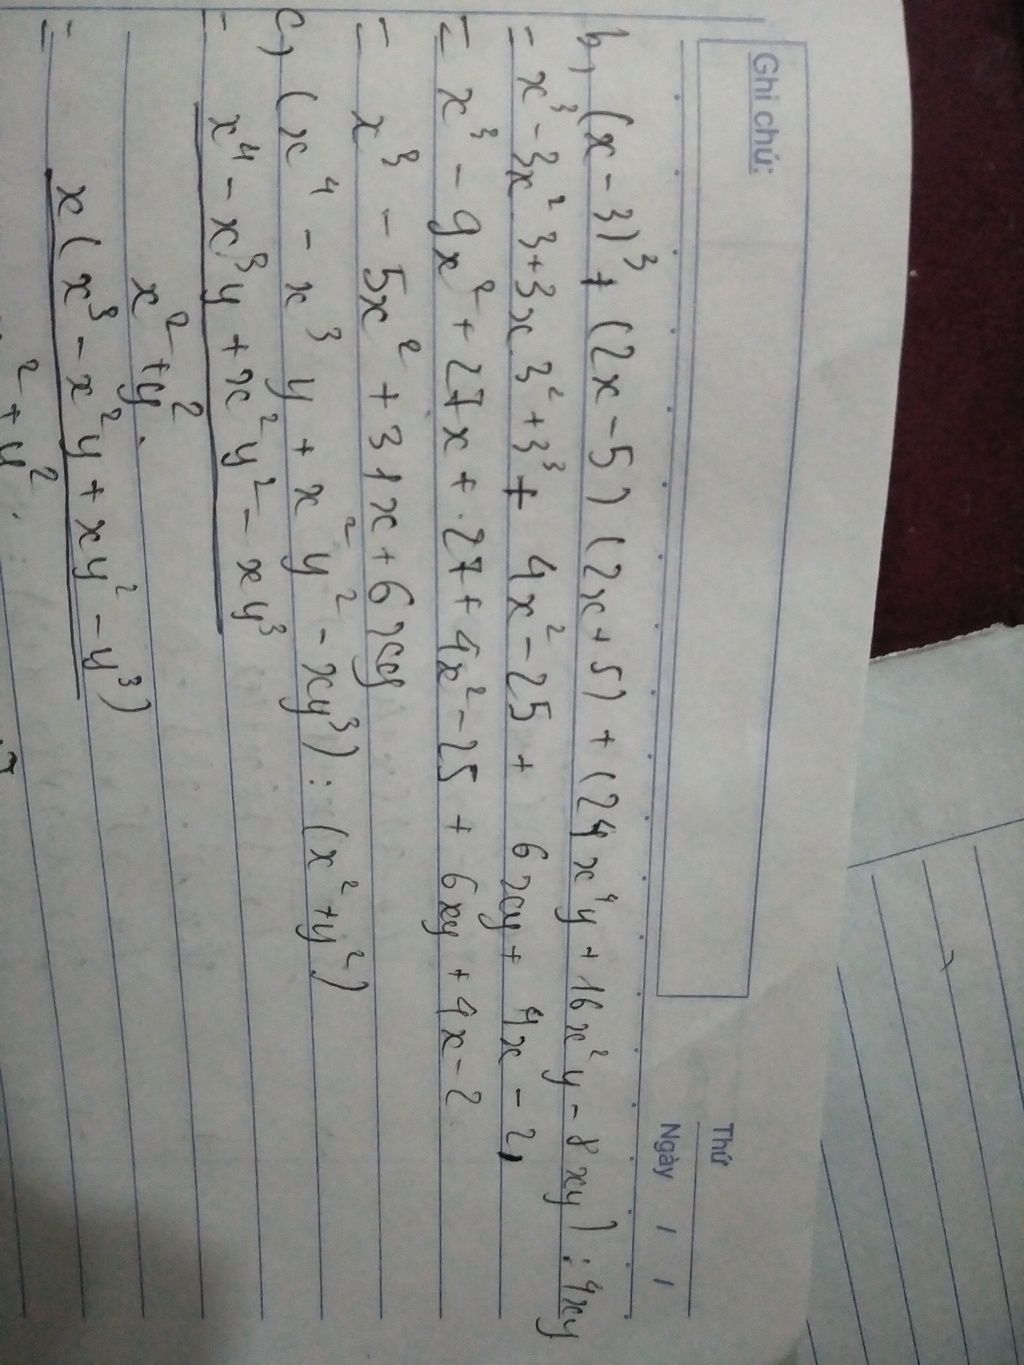 Ghi chú:
Thứ
Ngày / /
b, (x-3)³ + (2x-5)(2x+5) + (24x⁴y + 16x²y - 8xy) : 4xy
= x³ - 3x² 3 + 3x 3² + 3³ + 4x² - 25 + 6xy + 4x - 2,
= x³ - 9x² + 27x + 27 + 4x² - 25 + 6xy + 4x - 2
= x³ - 5x² + 31x + 6xy
c, (x⁴ - x³y + x²y² - xy³) : (x² + y²)
= x⁴ - x³y + x²y² - xy³
x² + y².
= x(x³ - x²y + xy² - y³)
² + y².